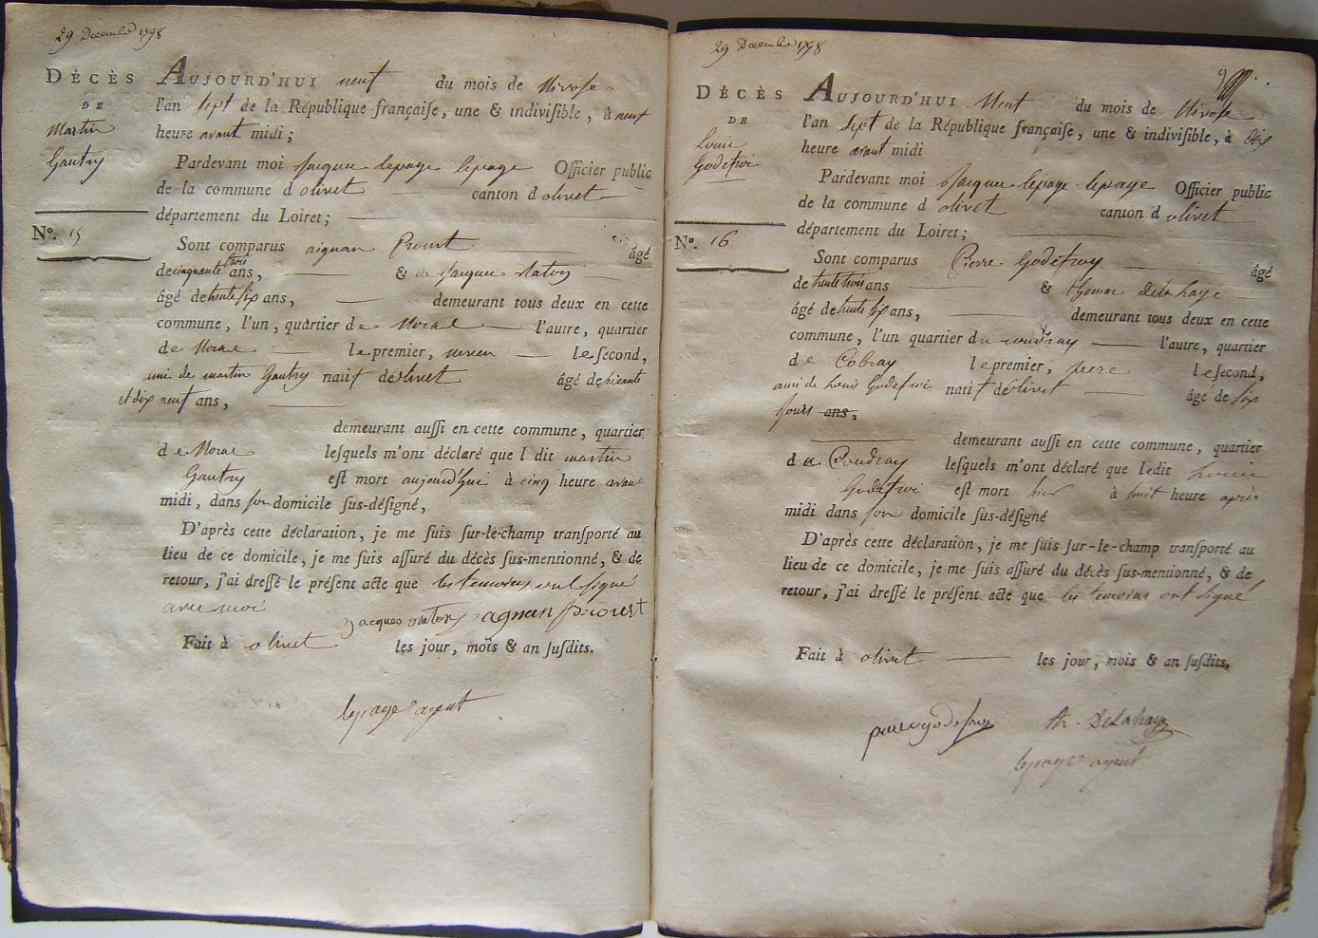 29 Decembre 1798
DÉCÈS
DE
Martin
Gautry
N°. 15
AUJOURD'HUI neuf du mois de Nivose
l'an sept de la République françaiſe, une & indiviſible, à neuf
heure avant midi;
Pardevant moi Jacque lepage lepage Officier public
de la commune d olivet canton d olivet
département du Loiret;
Sont comparus aignan Proust âgé
de cinquante trois ans, & de Jacque
âgé de trente ſix ans, demeurant tous deux en cette
commune, l'un, quartier de l'autre, quartier
de le premier, le ſecond,
ami de martin Gautry natif de olivet âgé de soixante
et dix neuf ans,
demeurant auſſi en cette commune, quartier
de leſquels m'ont déclaré que l dit martin
Gautry eſt mort aujourd'hui à cinq heure avant
midi, dans ſon domicile ſus-déſigné,
D'après cette déclaration, je me ſuis ſur-le-champ tranſporté au
lieu de ce domicile, je me ſuis aſſuré du décès ſus-mentionné, & de
retour, j'ai dreſſé le préſent acte que les temoins ont ſigné
avec moi
jacques agnan proust
Fait à olivet les jour, mois & an ſuſdits.
lepage agent
29 Decembre 1798
9
DÉCÈS
DE
Louis
Godefroi
N°. 16
AUJOURD'HUI Neuf du mois de Nivose
l'an ſept de la République françaiſe, une & indiviſible, à dix
heure avant midi
Pardevant moi Jacque lepage lepage Officier public
de la commune d olivet canton d olivet
département du Loiret;
Sont comparus Pierre Godefroy âgé
de trente trois ans & thomas delahaye
âgé de trente ſix ans, demeurant tous deux en cette
commune, l'un quartier du coudray l'autre, quartier
de Cobray le premier, pere le ſecond,
ami de Louis Godefroi natif de olivet âgé de ſix
jours ans,
demeurant auſſi en cette commune, quartier
du Coudray leſquels m'ont déclaré que ledit Louis
Godefroi eſt mort hier à huit heure après
midi dans ſon domicile ſus-déſigné
D'après cette déclaration, je me ſuis ſur-le-champ tranſporté au
lieu de ce domicile, je me ſuis aſſuré du décès ſus-mentionné, & de
retour, j'ai dreſſé le préſent acte que les temoins ont ſigné
Fait à olivet les jour, mois & an ſuſdits.
pierre godefroy th. Delahaye
lepage agent